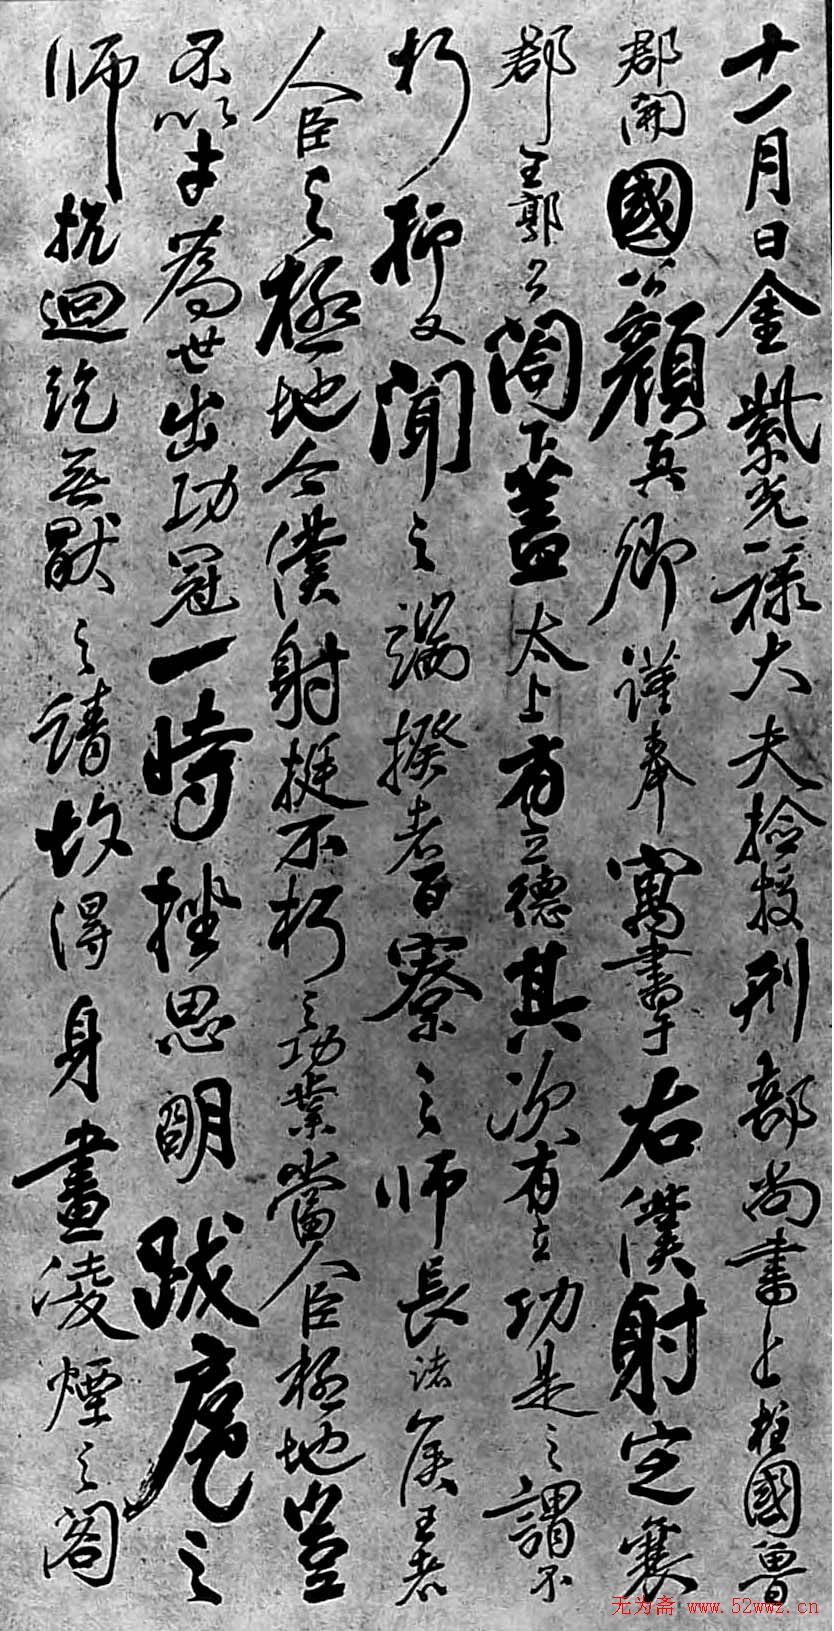 十一月日金紫光祿大夫檢校刑部尚書上柱國魯
郡開國公顏真卿謹奉寓書于右僕射定襄
郡王郭公閤下蓋太上有立德其次有立功是之謂不
朽抑又聞之端揆者百寮之師長諸侯王者
人臣之極地今僕射挺不朽之功業當人臣極地豈
不以才為世出功冠一時挫思明跋扈之
師抗迴紇無猒之請故得身畫凌煙之閣
无为斋 www.52wwz.cn